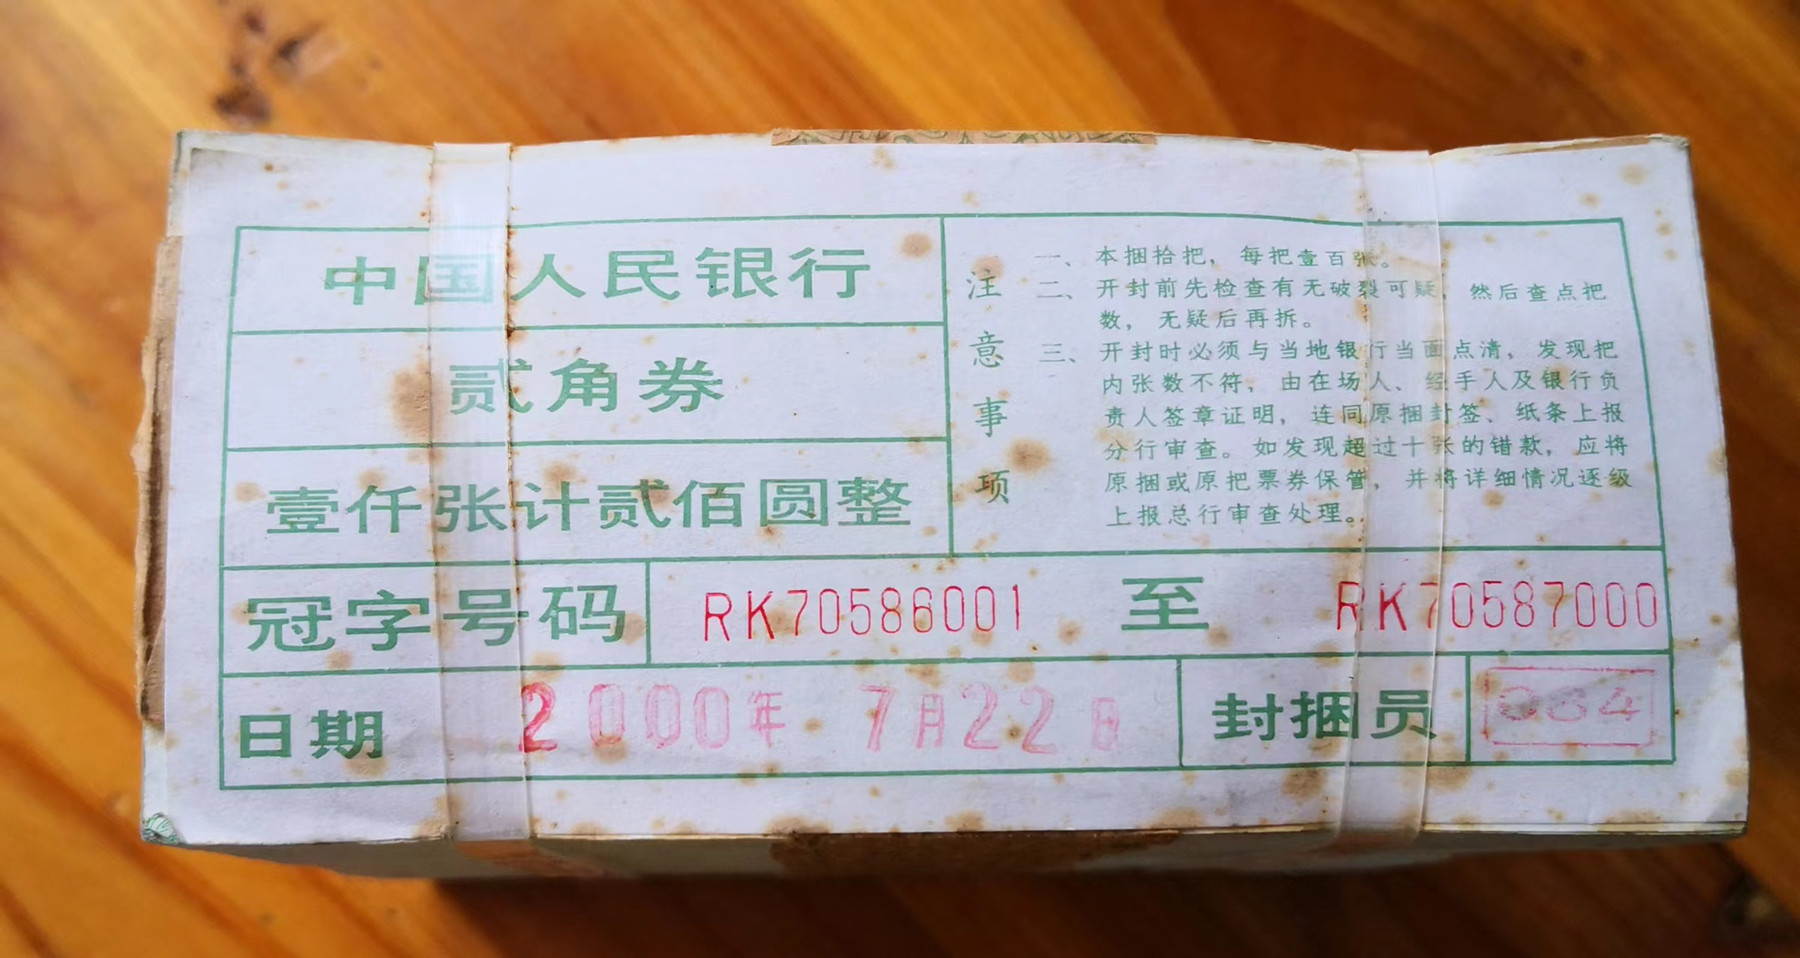 中国人民银行
贰角券
壹仟张计贰佰圆整
注意事项
一、本捆拾把，每把壹百张。
二、开封前先检查有无破裂可疑，然后查点把
数，无疑后再拆。
三、开封时必须与当地银行当面点清，发现把
内张数不符，由在场人、经手人及银行负
责人签章证明，连同原捆封签、纸条上报
分行审查。如发现超过十张的错款，应将
原捆或原把票券保管，并将详细情况逐级
上报总行审查处理。
冠字号码 RK70586001 至 RK70587000
日期 2000年 7月22日 封捆员